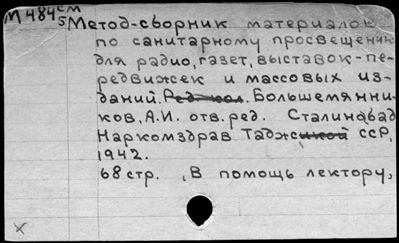 М 484 см
5 Метод-сборник материалов
по санитарному просвещению
для радио, газет, выставок-пе-
редвижек и массовых из-
даний. Ред. кол. Большемянни-
ков, А.И. отв. ред. Сталинабад
Наркомздрав Таджикской ССР,
1942.
68 стр. „В помощь лектору,